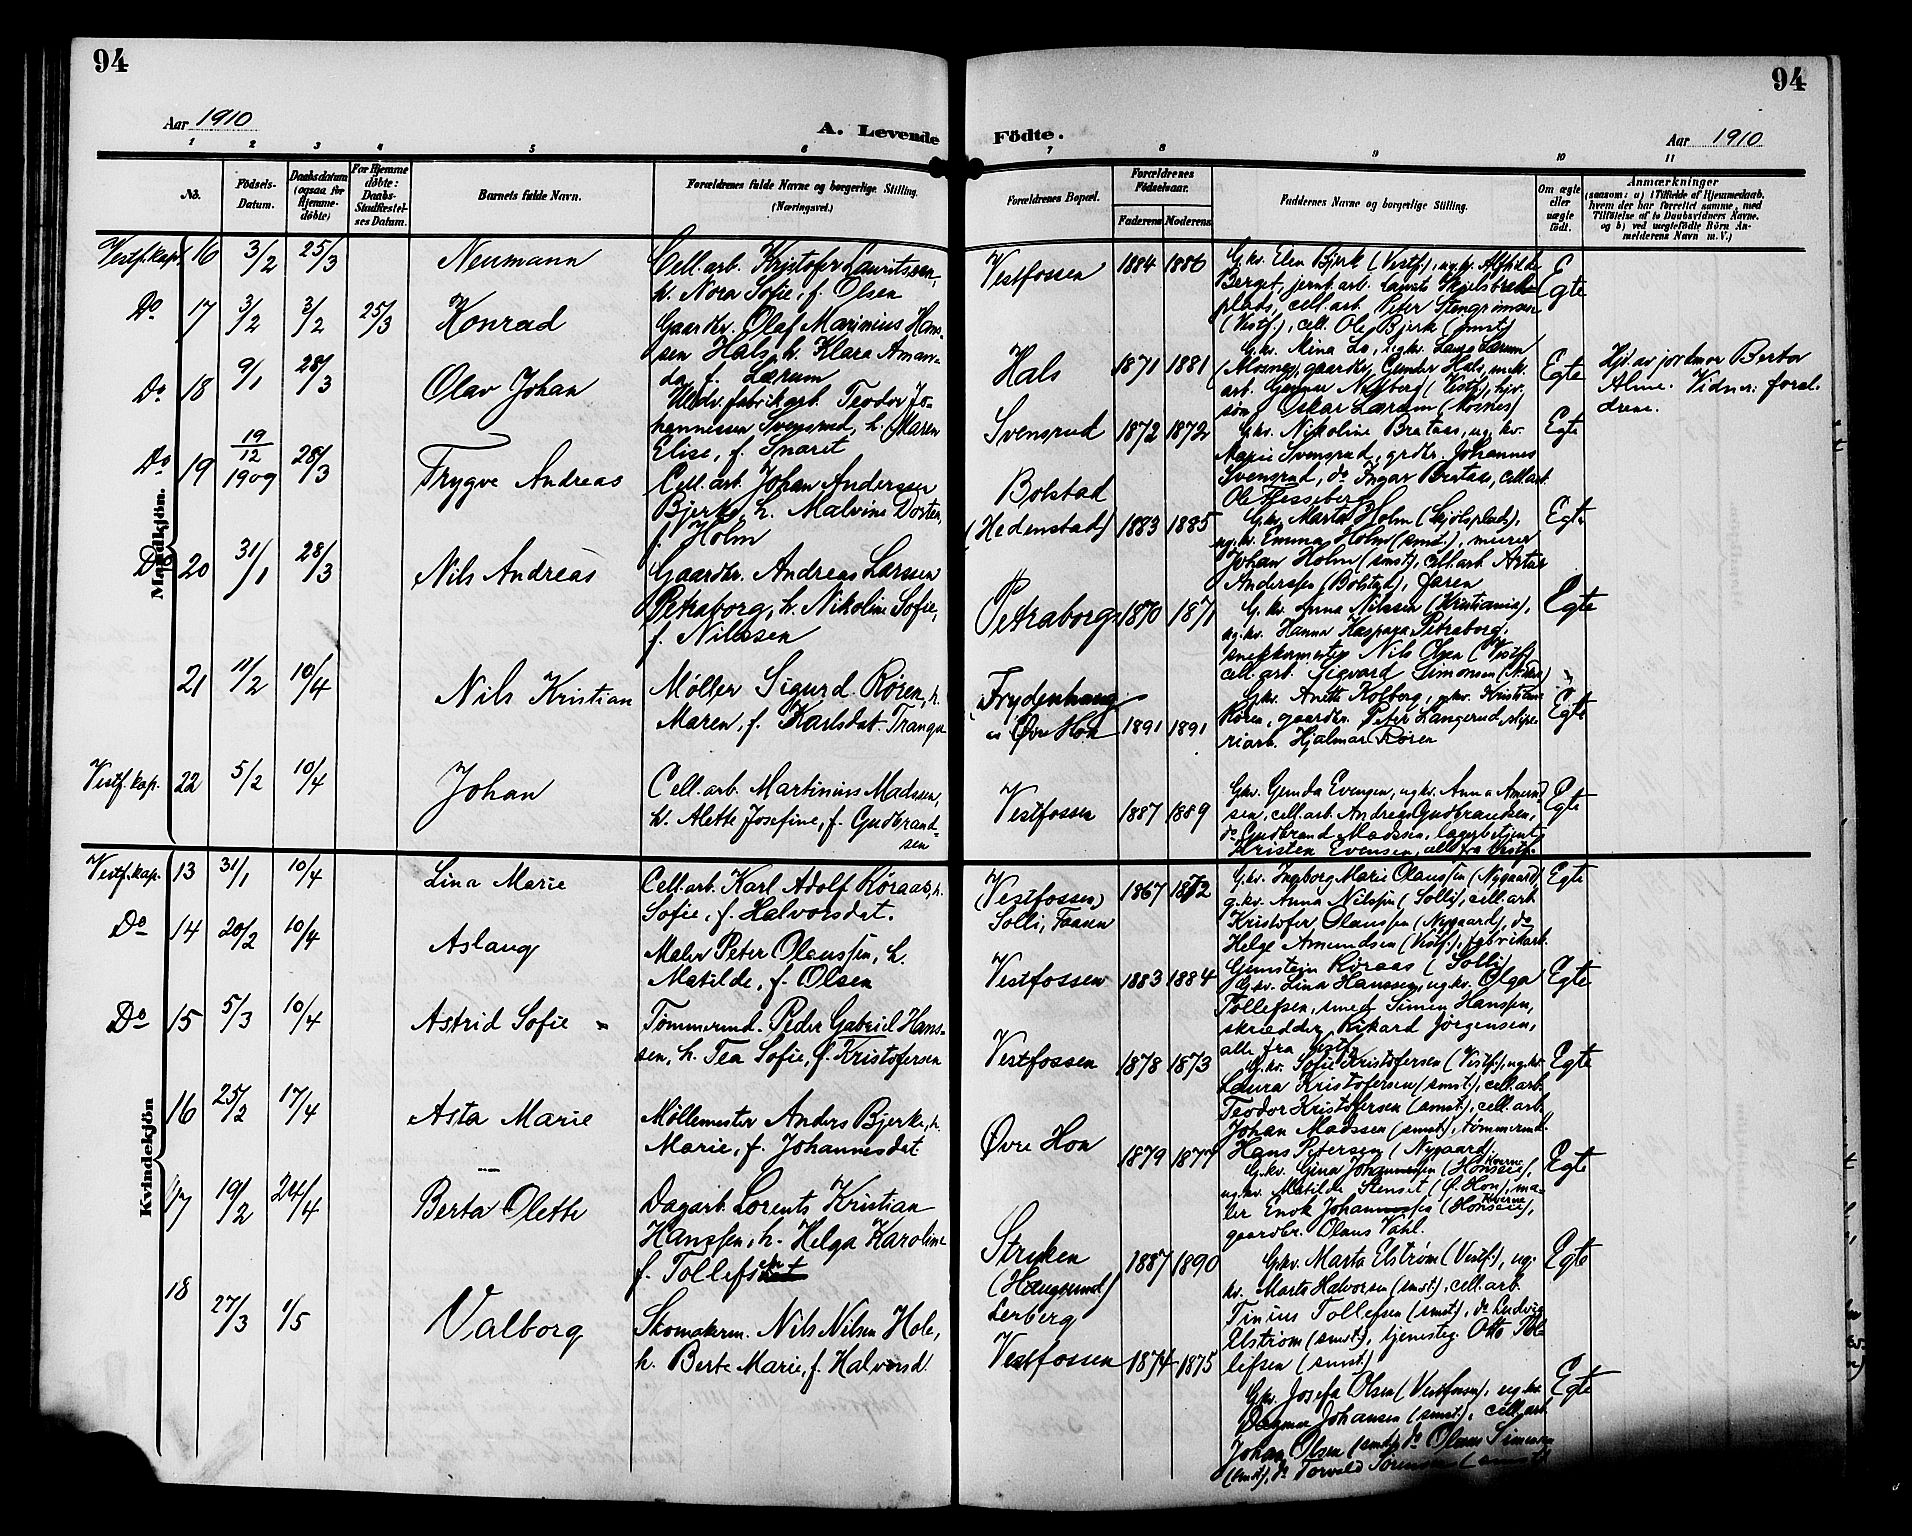 94
Aar 1910
A. Levende
1 2 3 4 5 6
No.
Födsels-
Datum.
Daabsdatum
(ogsaa for
Hjemme-
döbte)
For Hjemme
döbte:
Daabs-
Stadfæstel-
ses Datum.
Barnets fulde Navn.
Forældrenes fulde Navne og borgerlige Stilling.
(Næringsvei.)
Mandkjön.
Vestf. kap. 16 3/2 25/3 Neumann
Cell. arb. Kristofer Lauritssen,
h. Nora Sofie, f. Olsen
Do 17 3/2 3/2 25/3 Konrad
Gaardbr. Olaf Marinius Hans-
sen Hals, h. Klara Aman-
da, f. Lærum
Do 18 9/1 28/3 Olav Johan
Uldv. fabrikarb. Teodor Jo-
hannessen Svensrud, h. Maren
Elise, f. Snaret
Do 19 19/12 1909 28/3 Trygve Andreas
Cell. arb. Johan Anderssen
Bjerke, h. Malvine Dorten,
f. Holm
Do 20 31/1 28/3 Nils Andreas
Gaardbr. Andreas Larssen
Petraborg, h. Nikoline Sofie,
f. Nilssen
21 11/2 10/4 Nils Kristian
Møller Sigurd Røren, h.
Maren, f. Karlsdat. Tranga
Vestf. kap. 22 5/2 10/4 Johan
Cell. arb. Martinius Madssen,
h. Alette Josefine, f. Gudbrand-
sen
Kvindekjön
Vestf. kap. 13 31/1 10/4 Lina Marie
Cell. arb. Karl Adolf Røraas, h.
Sofie, f. Halvorsdat.
Do 14 20/2 10/4 Aslaug
Maler Peter Olaussen, h.
Matilde, f. Olsen
Do 15 5/3 10/4 Astrid Sofie
Tømmermd. Peder Gabriel Hans-
sen, h. Tea Sofie, f. Kristofersen
16 25/2 17/4 Asta Marie
Møllemester Anders Bjerke, h.
Marie, f. Johannesdat
17 19/2 24/4 Berta Olette
Dagarb. Lorents Kristian
Hanssen, h. Helga Karoline
f. Tollefsen
18 27/3 1/5 Valborg
Skomakerm. Nils Nilsen Hole,
h. Berte Marie, f. Halvorsd.
94
Födte.
Aar 1910
7 8 9 10 11
Forældrenes Bopæl.
Forældrenes
Födselsaar.
Faderens Moderens
Faddernes Navne og borgerlige Stilling.
Om ægte
eller
uægte
födt.
Anmærkninger
(saasom: a) i Tilfælde af Hjemmedaab,
hvem der har forrettet samme, med
Tilföielse af to Daabsvidners Navne.
og b) ved uægtefödte Börn An-
melderens Navn m. V.)
Vestfossen 1884 1886
G.kv. Elen Bjerk (Vestf.), ug.kv. Alfhilde
Berget, jernb. arb. Laurits Skjelsbræk-
plads, cell. arb. Peter Stengrimsen
(Vestf.), cell. Ole Bjerk (smst)
E
Egte
Hals 1871 1881
G.kv. Mina Lo, ug.kv. Laura Lærum
(Mosnes), gaardbr. Gunder Hals, mek.
arb. Gunnar Nyberg (Vestf.), hjv.
søn Oskar Lærum (Mosnes)
Egte
Hjd. av jordmor Berta
Alme. Vidner: foræl-
drene.
Svensrud 1872 1872
G.kv. Nikoline Brataas, ug. kv.
Marie Svensrud, grdbr. Johannes
Svensrud, do Ingar Brataas, cell. arb.
Ole Tesseberg
Egte
Bolstad
(Hedenstad) 1883 1885
G.kv. Marta Holm (Skjølsplads),
ug.kv. Emma Holm (smst.), murer
Johan Holm (smst), cell. arb. Artur
Anderssen (Bolstad), faren
Egte
Petraborg 1870 1871
G.kv. Anna Nilssen (Kristiania),
ug.kv. Hanna Kaspara Petraborg,
snekkermester Nils Olsen (Vestf.)
cell. arb. Sigvard Simonsen
Egte
Frydenhaug
u/ Øvre Hon 1891 1891
G.kv. Anette Kolberg, ug.kv. Kristiane
Røren, gaardbr. Peter Langerud, slipe-
riarb. Hjalmar Røren
Egte
Vestfossen 1887 1889
G.kv. Gunda Evensen, ug.kv. Anna Amund-
sen, cell. arb. Andreas Gudbrandsen,
do Gudbrand Madssen, lagerbetjent
Kristen Evensen, alle fra Vestf.
Egte
(Vestfossen)
Solli, Fossen 1867 1872
G.kv. Ingborg Marie Olaussen (Nygaard)
g.kv. Anna Nilssen (Solli), cell. arb.
Kristofer Olaussen (Nygaard), do
Helge Amundsen (Vestf.), fabrikarb.
Gunstein Røraas (Solli)
Egte
Vestfossen 1883 1884
G.kv. Lina Hanssen, ug.kv. Olga
Tollefsen, smed Simen Hanssen,
skrædder Rikard Jörgensen,
alle fra Vestf.
Egte
Vestfossen 1878 1873
G.kv. Sofie Kristofersen (Vestf.), ug.kv.
Laura Kristofersen (smst.), cell. arb.
Teodor Kristofersen (smst.), cell. arb.
Johan Madssen (smst.), tømmermd.
Hans Petersen (Nygaard)
Egte
Øvre Hon 1879 1877
G.kv. Gina Johannessen (Honseie),
ug.kv. Matilde Stenset (Ø. Hon), ma-
ler Enok Johannessen (Honseie),
gaardbr. Olaus Vahl.
Egte
Stryken
(Haugsund)
Lerberg 1887 1890
G.kv. Marta Elstrøm (Vestf.), ug.
kv. Marta Halvorsen (smst), cell. arb.
Tinius Tollefsen (smst), do Ludvig
Elstrøm (smst), tjenesteg. Otto Tol-
lefsen (smst)
Egte
Vestfossen 1874 1875
G.kv. Josefa Olsen (Vestfossen), ug.kv.
Dagmar Johansen (smst), cell. arb.
Johan Olsen (smst) do Olaus Simensen
(smst), do Torvald Sørensen (smst)
Egte